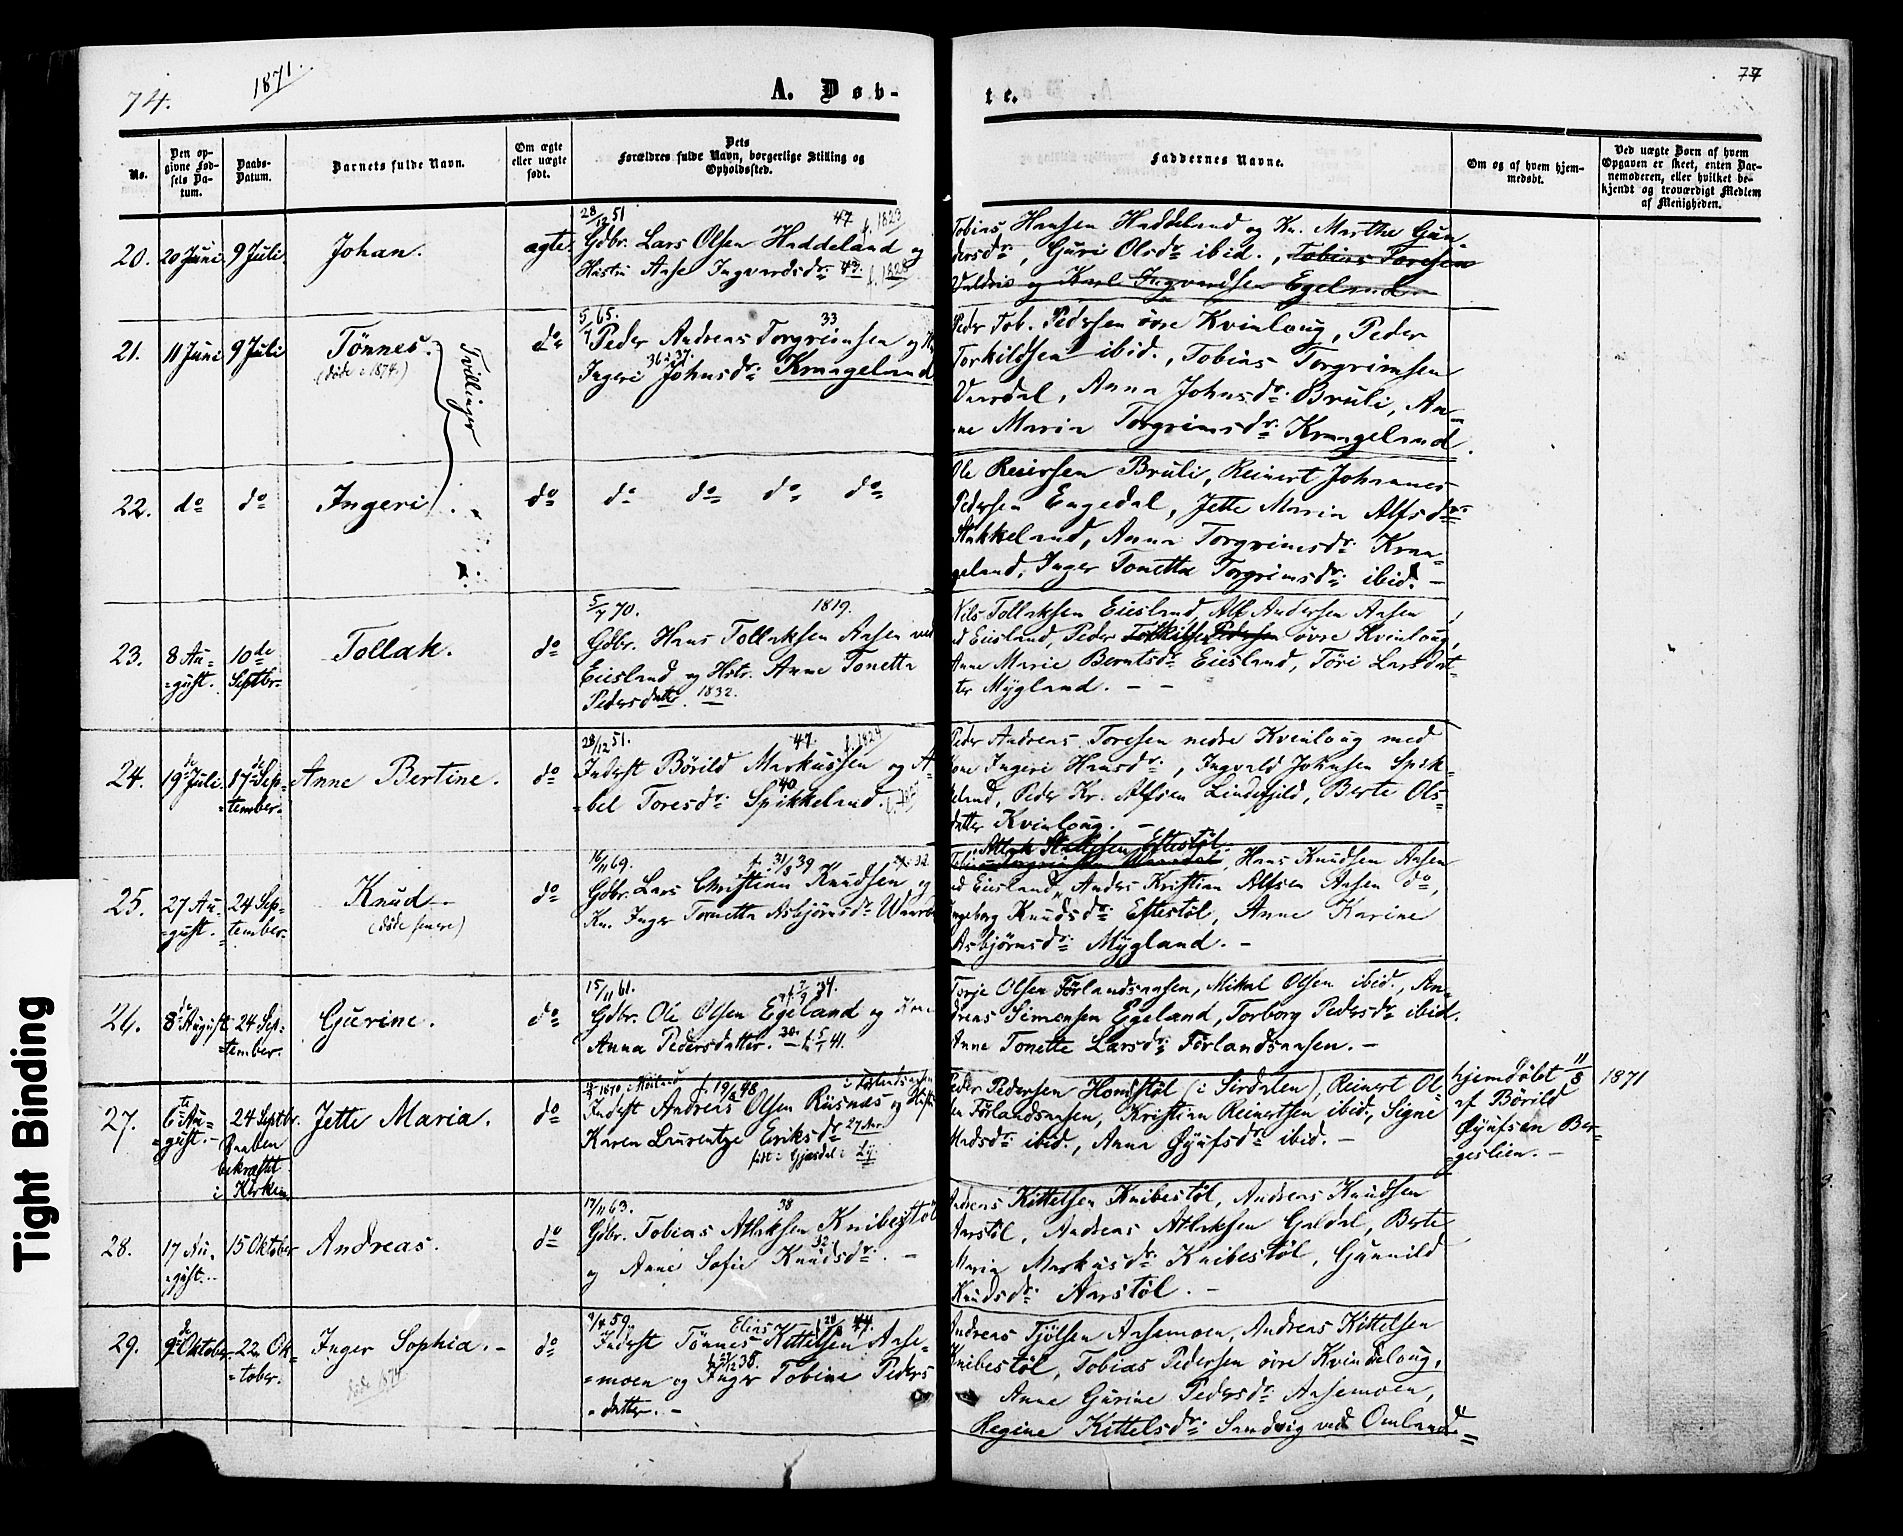 74.
1871.
A. Døb-
te.
77
No.
Den op-
givne Fød-
sels Da-
tum.
Daabs-
Datum.
Barnets fulde Navn.
Om ægte
eller uægte
født.
Dets
Forældres fulde Navn, borgerlige Stilling og
Opholdssted.
Faddernes Navne.
Om og af hvem hjem-
medøbt.
Ved uægte Børn af hvem
Opgaven er skeet, enten Bar-
nemoderen, eller hvilket be-
kjendt og troværdigt Medlem
af Menigheden.
20. 20 Juni 9 Juli Johan. ægte.
28/12 51 47 f. 1823
Gdbr. Lars Olsen Haddeland og
Hustru Aase Ingvardsdr: 43. f. 1828
Tobias Hansen Haddeland og Kn. Marthe Gun-
dersdr:, Guri Olsdr: ibid., Tobias Toresen
Valdris og Karl Ingvardsen Egeland
21. 11 Juni 9 Juli Tönnes. do
(døde i 1874.)
Tvillinger
5/7 65. 33
Peder Andreas Torgrimsen og
36 a 37.
Ingeri Johnsdr: Kraageland
Peder Tob. Pedersen övre Kvinlaug, Peder
Torkildsen ibid., Tobias Torgrimsen
Vaardal, Anna Johnsdr: Bruli, An-
ne Maria Torgrimsdr: Kraageland.
22. do do Ingeri. do do do do do
Ole Reiersen Bruli, Reinert Johannes
Pedersen Engedal, Jette Maria Alfsdr:
Stakkeland, Anna Torgrimsdr: Kraa-
geland, Inger Tonetta Torgrimsdr: ibid. -
23. 8 Au-
gust. 10de
Septbr. Tollak. do
5/7 70. 1819.
Gdbr. Hans Tollaksen Aasen ved
Eiesland og Hstr. Anne Tonetta
Pedersdatter. 1832.
Nils Tollaksen Eiesland, Alf Andersen Aasen
ved Eiesland, Peder Torkilsen Pedersen övre Kvinlaug,
Anne Marie Berntsdr: Eiesland, Töri Larsdat-
ter Mygland. - -
24. 19de Juli. 17de Sep-
tember. Anne Bertine. do
28/12 51. 47. f. 1824
Inderst Börild Markussen og A-
40
bel Toresdr: Spikkeland.
Peder Andreas Toresen nedre Kvinlaug med
Kone Ingeri Hansdr:, Ingvald Johnsen Spik-
keland, Peder Kr. Alfsen Lindefjeld, Berte Ols-
datter Kvinlaug. -
25. 27 Au-
gust. 24 Sep-
tember. Knud - do
(døde senere)
16/11 69. f. 31/8 39
Gdbr. Lars Christian Knudsen og
Kn. Inger Tonetta Asbjörnsdr:
Eftestöl
Hans Knudsen Aasen
ved Eiesland, Anders Kristian Alfsen Aasen do,
Ingeborg Knudsdr: Eftestöl, Anne Karine
Asbjörnsdr: Mygland. -
26. 8de August 24 Sep-
tember. Gurine. do
15/11 61. 34.
Gdbr. Ole Olsen Egeland og Kone
Anna Pedersdatter. 30. f. 5/1 41.
Torje Olsen Förlandsaasen, Mikal Olsen ibid., An-
dreas Simonsen Egeland, Torborg Pedersdr: ibid.
Anne Tonette Larsdr: Förlandsaasen. -
27. 6te Au-
gust. - 24 Septbr.
Daaben
bekræftet
i Kirken Jette Maria. do
f. 19/6 48 i Förlandsaasen
Inderst Andreas Olsen Risnæs og Hustru
Karen Laurentze Eriksdr: 27 Aar
født i Gjæsdal i
Peder Pedersen Homstöl (i Sirdalen), Reinert Ol-
sen Förlandsaasen, Kristian Reinertsen ibid., Signe
Madsdr: ibid., Anna Öyufsdr: ibid. -
hjemdöbt 11/8 1871
af Börild
Öyufsen Ber-
geslien. -
28. 17 Au-
gust. 15 Oktober Andreas. do
17/11 63. 38
Gdbr. Tobias Atlaksen Knibestöl
32
og Anne Sofie Knudsdr: -
Andreas Kittelsen Knibestöl, Andreas Knudsen
Aarstöl, Andreas Atlaksen Galdal, Berte
Maria Markusdr: Knibestöl, Gunnild
Knudsdr: Aarstöl. -
29. 9de Oktober 22 Ok-
tober. Inger Sophia. - do
døde 1874
Elias 44.
Inderst Tönnes Kittelsen Aase-
moen og Inger Tobine Peders
datter. -
Andreas Tjölsen Aasemoen, Andreas Kittelsen
Knibestöl, Tobias Pedersen övre Kvindelaug,
Anne Gurine Pedersdr: Aasemoen,
Regine Kittelsdr: Sandvig ved Omland.
Tight Binding